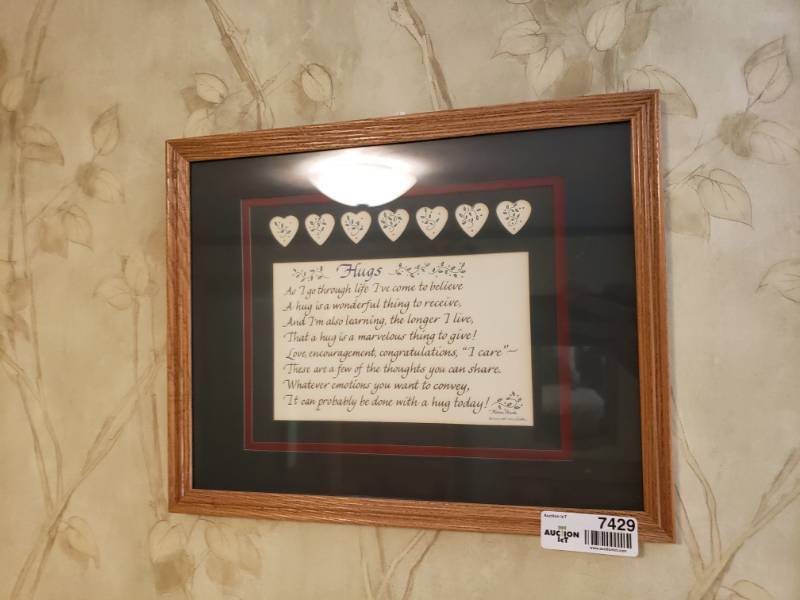 Hugs
As I go through life I've come to believe
A hug is a wonderful thing to receive,
And I'm also learning, the longer I live,
That a hug is a marvelous thing to give!
Love, encouragement, congratulations, "I care"—
These are a few of the thoughts you can share.
Whatever emotions you want to convey,
It can probably be done with a hug today!
Auction IcT
7429
AUCTION
IcT
www.auctionict.com